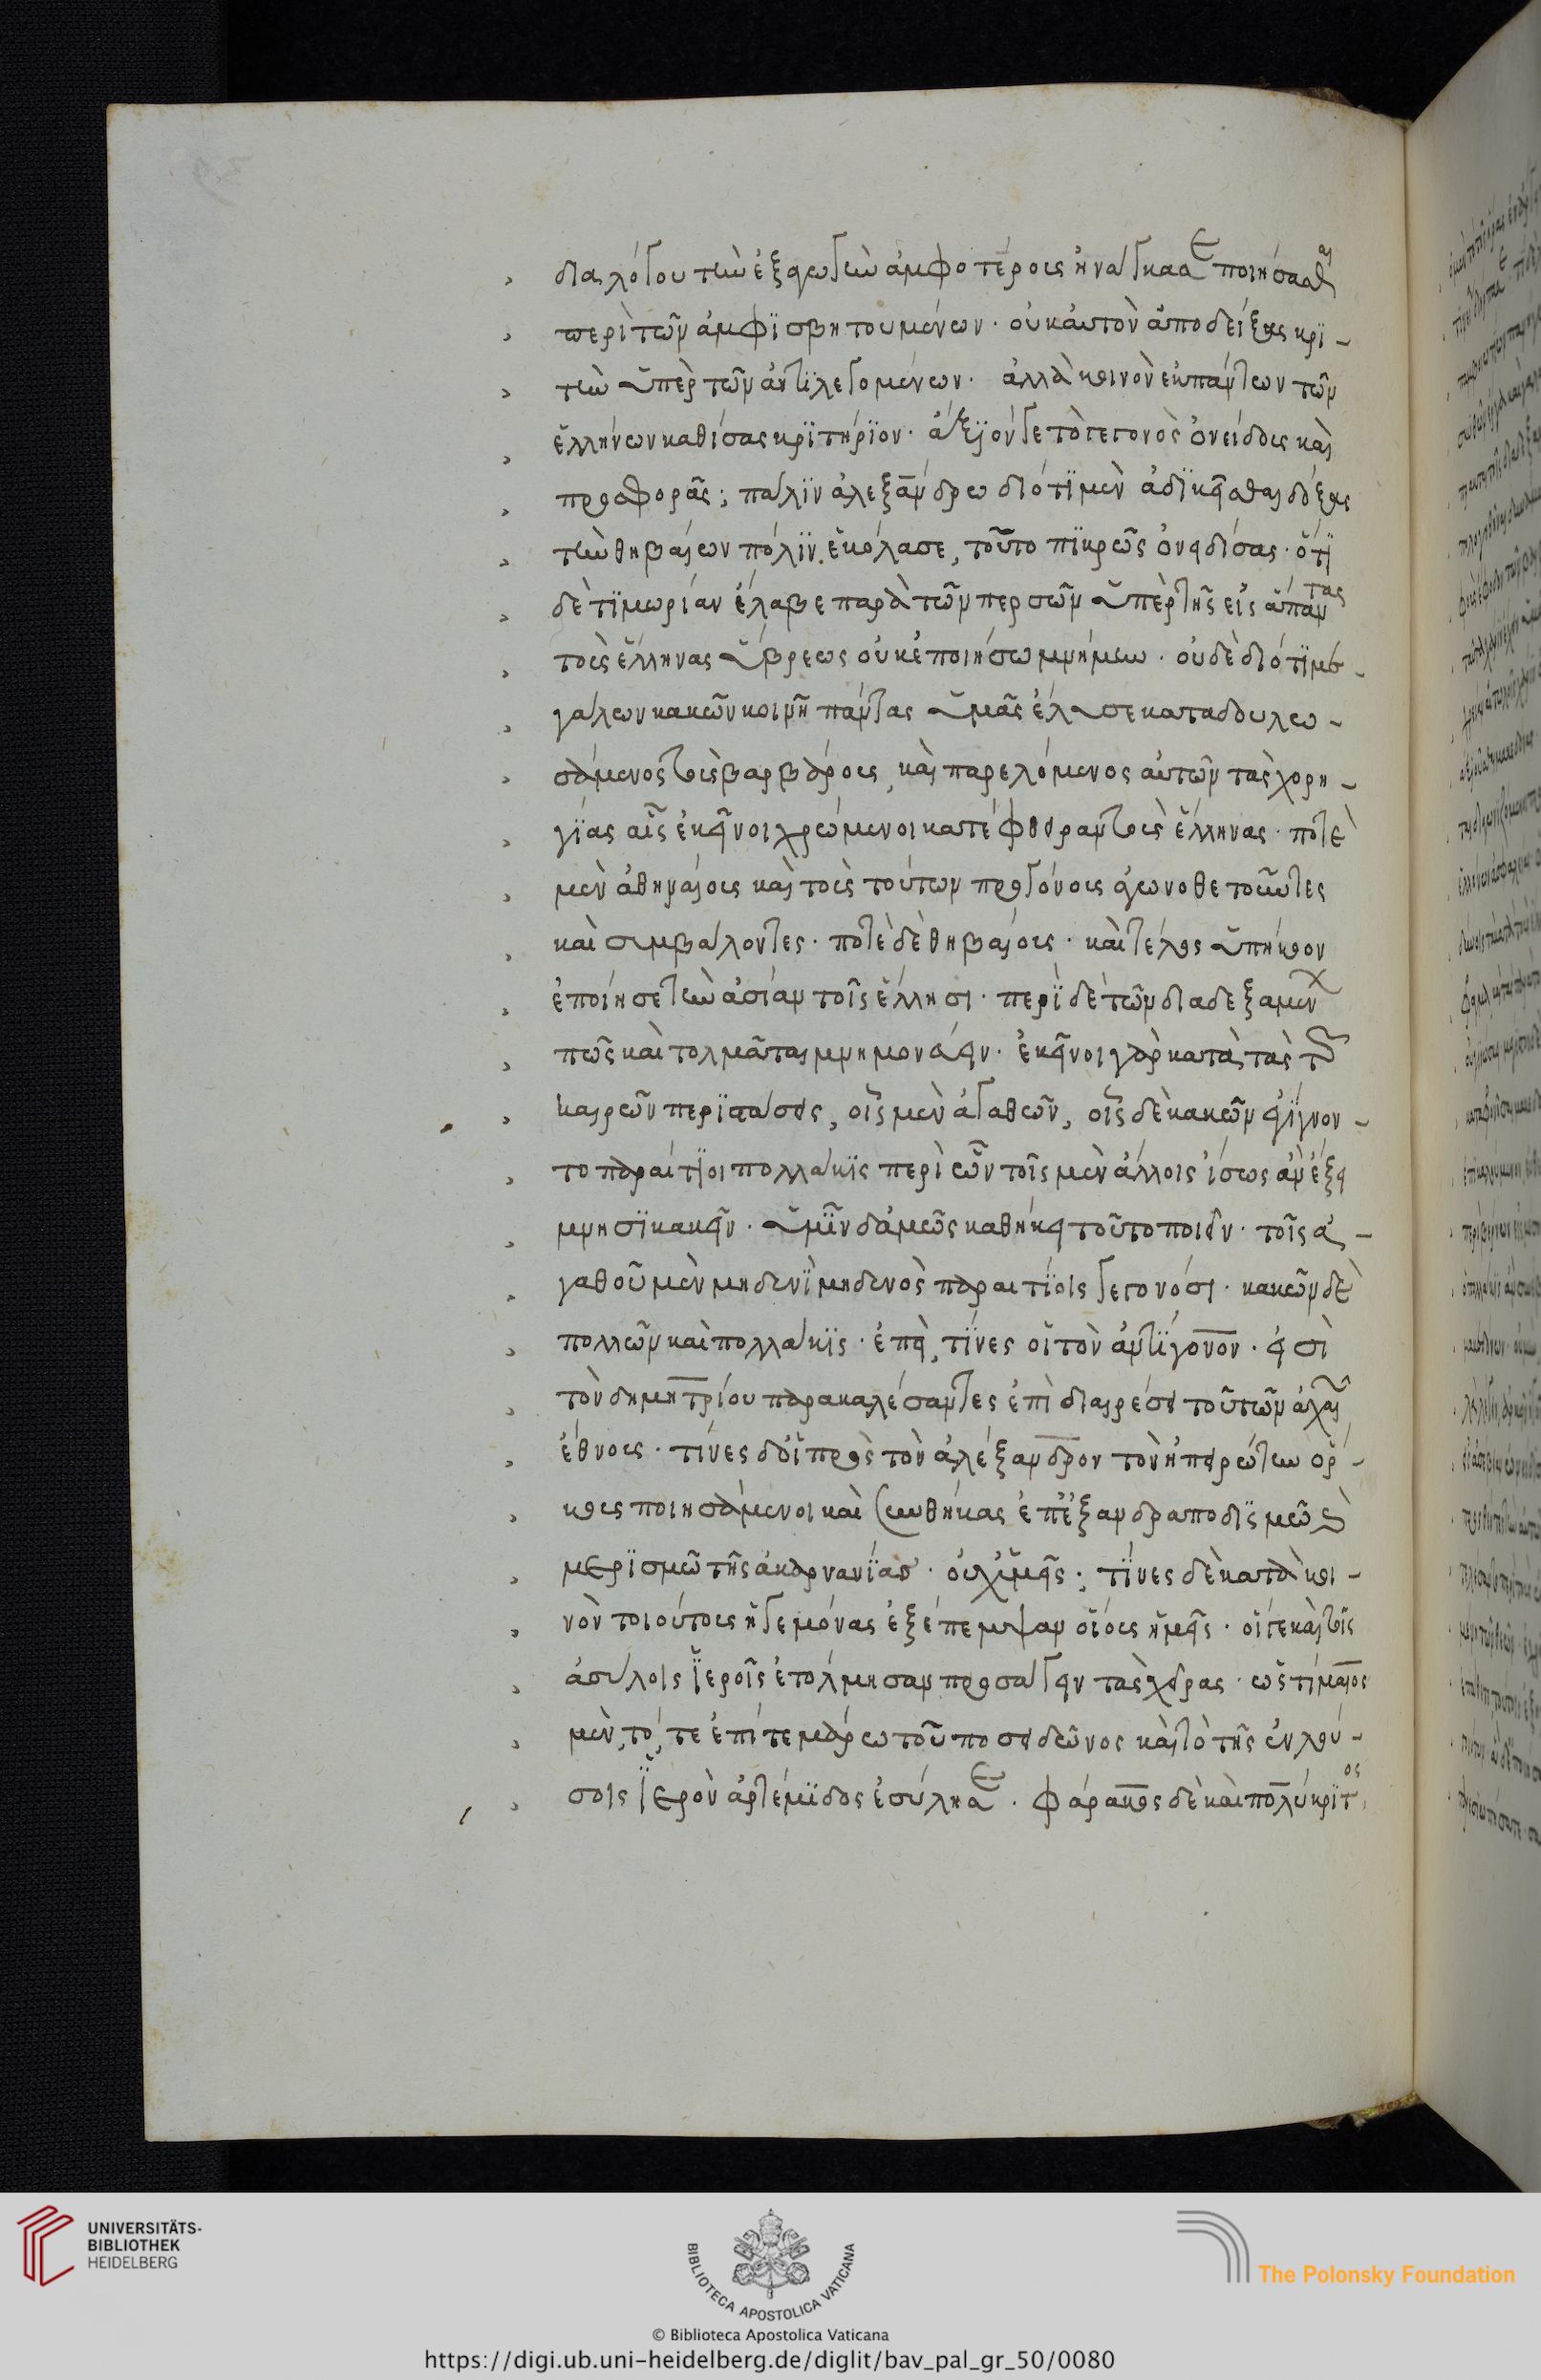 διαλόγου τὴν ἐξαγωγὴν ἀμφοτέρους ἠνάγκασε ποιήσασθαι
περὶ τῶν ἀμφϊσβητουμένων· οὐκ αὑτὸν ἀποδείξας κρϊ-
τὴν ὑπὲρ τῶν ἀντϊλεγομένων· ἀλλὰ κοινὸν ἐκ πάντων τῶν
ἑλλήνων καθίσας κρϊτήρϊον· ἄξϊόν γε τὸ γεγονὸς ὀνείδους καὶ
προσφορᾶς; πάλϊν ἀλεξάνδρω διότϊ μὲν ἀδϊκεῖσθαι δόξας
τὴν θηβαίων πόλϊν ἐκόλασε, τοῦτο πϊκρῶς ὀνειδίσας· ὅτϊ
δὲ τϊμωρίαν ἔλαβε παρὰ τῶν περσῶν ὑπὲρ τῆς εἰς ἅπαντας
τοὺς ἕλληνας ὕβρεως οὐκ ἐποιήσω μνήμην· οὐδὲ διότϊ με-
γάλων κακῶν κοινῆ πάντας ὑμᾶς ἔλυσε καταδουλω-
σάμενος τοὺς βαρβάρους, καὶ παρελόμενος αὐτῶν τὰς χορη-
γΐας αἷς ἐκεῖνοι χρώμενοι κατέφθειραν τοὺς ἕλληνας· ποτὲ
μὲν ἀθηναίους καὶ τοὺς τούτων προγόνους ἀγωνοθετοῦντες
καὶ συμβάλοντες· ποτὲ δὲ θηβαίους· καὶ τέλος ὑπήκοον
ἐποίησε τὴν ἀσίαν τοῖς ἕλλησι· περὶ δὲ τῶν διαδεξαμένων
πῶς καὶ τολμᾶται μνημονεύειν· ἐκεῖνοι γὰρ κατὰ τὰς τῶν
καιρῶν περϊστάσεις, οἷς μὲν ἀγαθῶν, οἷς δὲ κακῶν ἐγΐγνον-
το παραίτϊοι πολλάκϊς περὶ ὧν τοῖς μὲν ἄλλοις ἴσως ἂν ἐξῇ
μνησϊκακεῖν· ὑμῖν δ' ἀμῶς καθήκει τοῦτο ποιεῖν· τοῖς ἀ-
γαθοῦ μὲν μηδενΐ μηδενὸς παραιτΐοις γεγονόσι· κακῶν δὲ
πολλῶν καὶ πολλάκϊς· ἐπεὶ, τΐνες οἱ τὸν ἀντΐγονον· εἰσὶ
τὸν δημητρίου παρακαλέσαντες ἐπὶ διαιρέσει τοῦ τῶν ἀχαιῶν
ἔθνους· τίνες δ' οἱ πρὸς τὸν ἀλέξανδρον τὸν ἠπειρώτην ὅρ-
κους ποιησάμενοι καὶ συνθήκας ἐπ' ἐξανδραποδϊσμῶ καὶ
μερϊσμῶ τῆς ἀκαρνανΐας· οὐχ ὑμεῖς; τΐνες δὲ κατὰ κοι-
νὸν τοιούτους ἡγεμόνας ἐξέπεμψαν οἵους ἡμεῖς· οἵ γε καὶ τοῖς
ἀσύλοις ἱεροῖς ἐτόλμησαν προσάγειν τὰς χεῖρας· ὧς τίμαιος
μὲν, τό, τε ἐπὶ τεμάρω τοῦ ποσειδῶνος καὶ τὸ τῆς ἐν λου-
σοῖς ἱερὸν ἀρτέμϊδος ἐσύλησε. φάρακος δὲ καὶ πολύκρϊτος
UNIVERSITÄTS-
BIBLIOTHEK
HEIDELBERG
BIBLIOTECA APOSTOLICA VATICANA
The Polonsky Foundation
© Biblioteca Apostolica Vaticana
https://digi.ub.uni-heidelberg.de/diglit/bav_pal_gr_50/0080